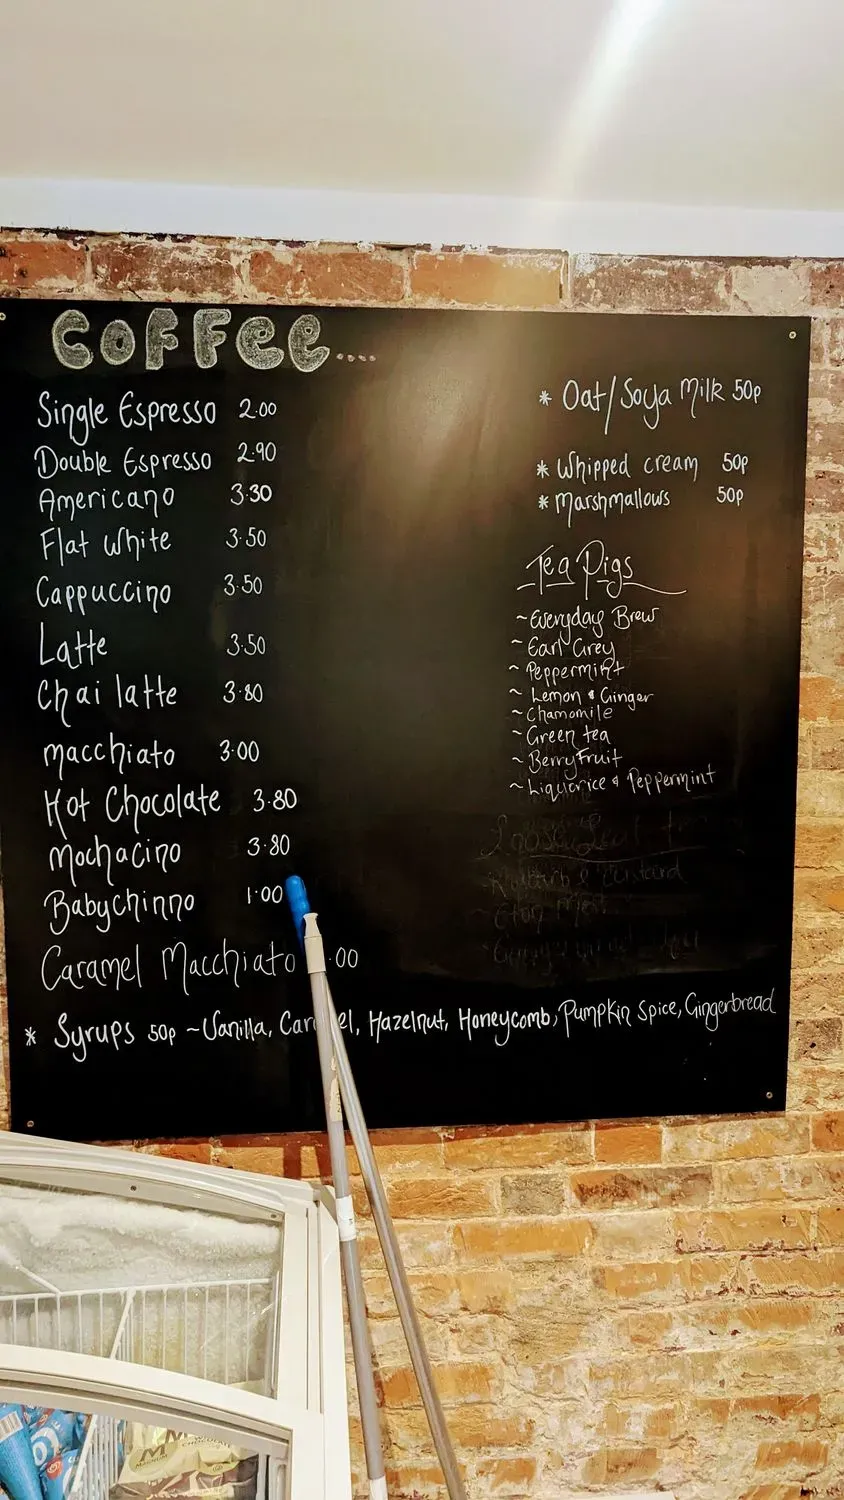 COFFEE....
Single Espresso 2.00
Double Espresso 2.90
Americano 3.30
Flat White 3.50
Cappuccino 3.50
Latte 3.50
Chai latte 3.80
macchiato 3.00
Hot Chocolate 3.80
Mochacino 3.80
Babychinno 1.00
Caramel Macchiato .00
* Syrups 50p ~Vanilla, Caramel, Hazelnut, Honeycomb, Pumpkin Spice, Gingerbread
* Oat/Soya Milk 50p
* Whipped cream 50p
* Marshmallows 50p
Tea Pigs
~Everyday Brew
~ Earl Grey
~ Peppermint
~ Lemon & Ginger
~ Chamomile
~ Green tea
~ Berry Fruit
~ Liquorice & Peppermint
Loose Leaf